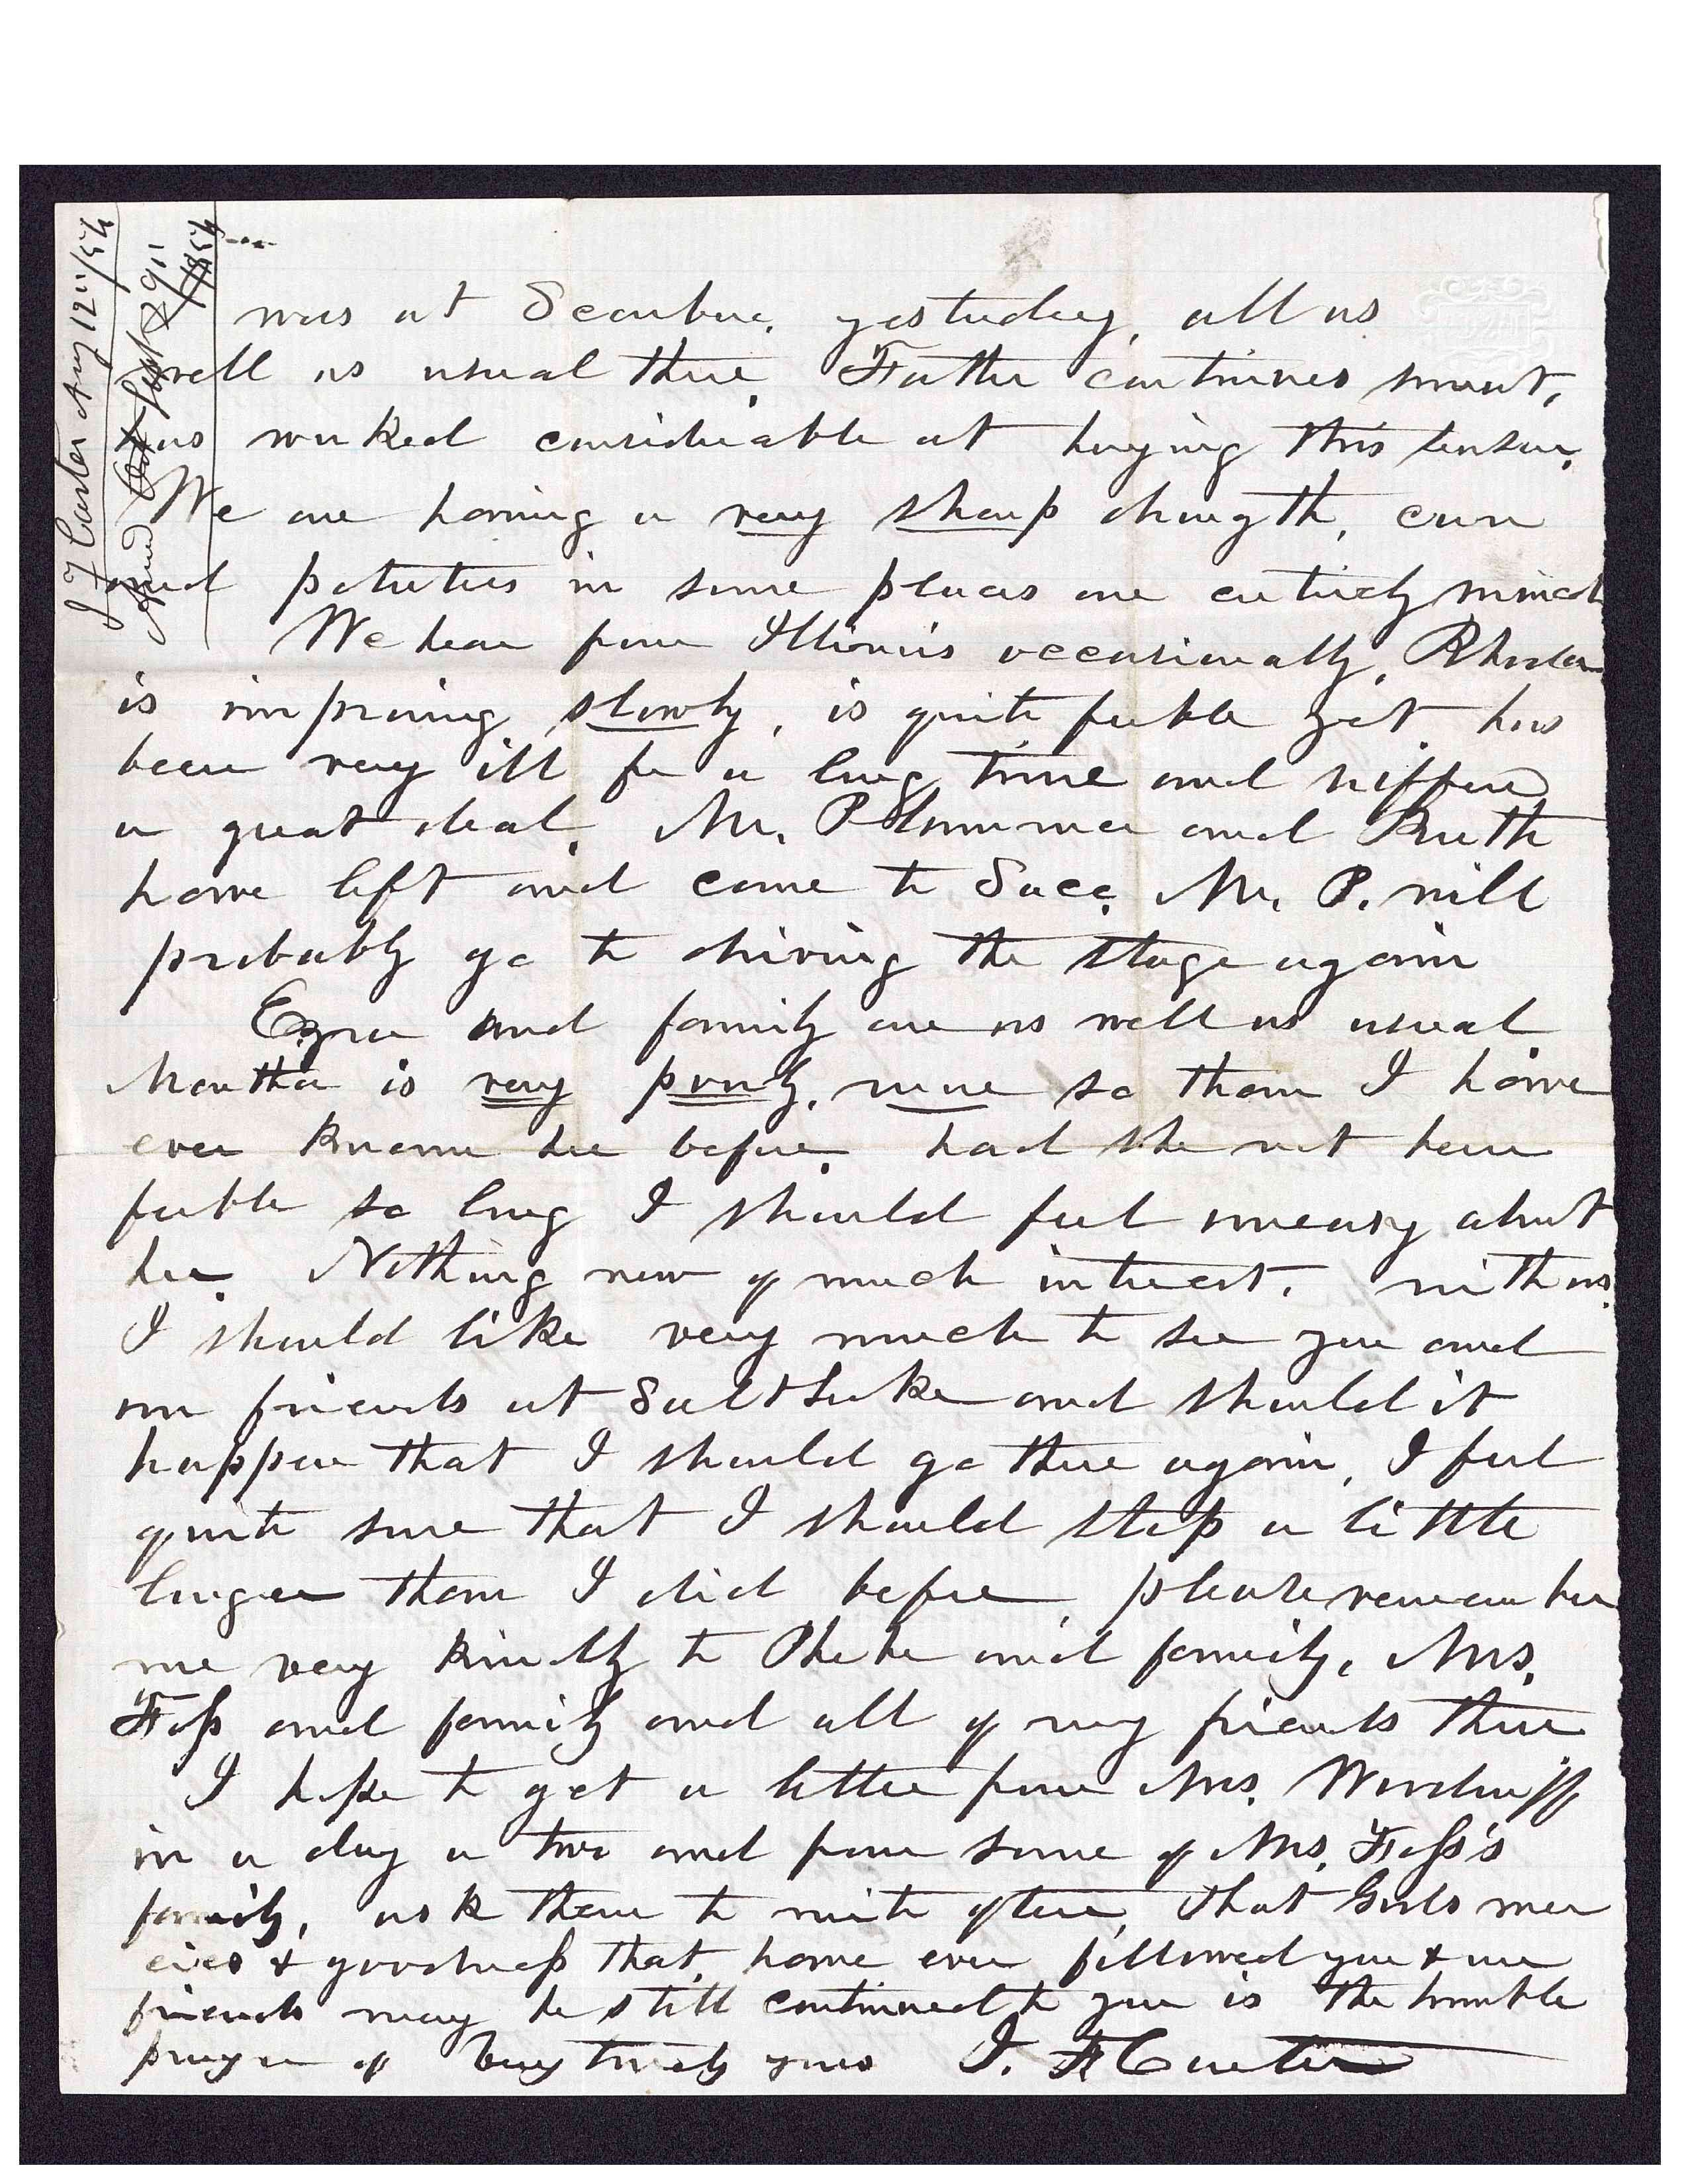 J F Carter Aug 12"/54
Ansd Sept 29"
1854
was at Scarboro, yesterday, all as
well as usual there. Father continues smart,
has worked considerable at haying this season.
We are having a very sharp drougth, corn
and potatoes in some places are entirely ruined
We hear from Illionis occasionally, Rhoda
is improving slowly, is quite feeble yet, has
been very ill for a long time and suffered
a great deal. Mr. Plummer and Ruth
have left and come to Saco. Mr. P. will
probably go to driving the stage again
Ezra and family are as well as usual.
Martha is very poorly, more so than I have
ever known her before. had she not been
feeble so long I should feel uneasy about
her. Nothing new of much interest, with us.
I should like very much to see you and
our friends at Salt Lake and should it
happen that I should go there again, I feel
quite sure that I should stop a little
longer than I did before, please remember
me very kindly to Phebe and family, Mrs.
Foss and family and all of my friends there
I hope to get a letter from Mrs. Woodruff
in a day or two and from some of Mrs. Foss's
family, ask them to write often, that Gods mer
cies & goodness that have ever followed you & our
friends may be still continued to you is the humble
prayer of Very truly yours J. F. Carter